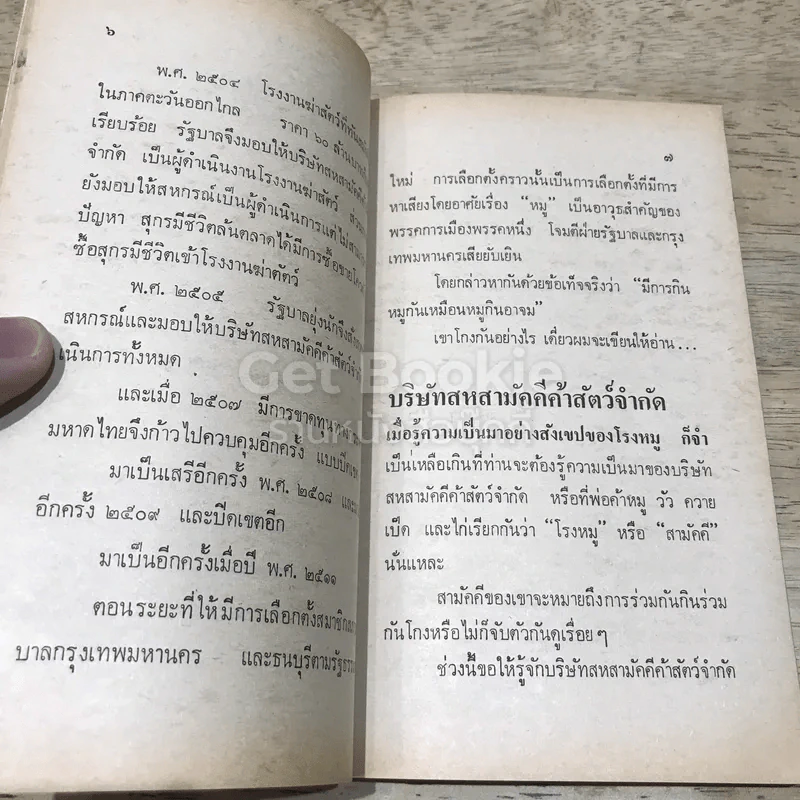 ๖
พ.ศ. ๒๕๐๔ โรงงานฆ่าสัตว์ที่ทันสมัย
ในภาคตะวันออกไกล ราคา ๖๐ ล้านบาท
เรียบร้อย รัฐบาลจึงมอบให้บริษัทสหสามัคคี
จำกัด เป็นผู้ดำเนินงานโรงงานฆ่าสัตว์
ยังมอบให้สหกรณ์เป็นผู้ดำเนินการแต่ไม่สามารถ
ปัญหา สุกรมีชีวิตล้นตลาดได้มีการซื้อขาย
ซื้อสุกรมีชีวิตเข้าโรงงานฆ่าตัตว์
พ.ศ. ๒๕๐๕ รัฐบาลยุ่งนักจึงสั่ง
สหกรณ์และมอบให้บริษัทสหสามัคคีค้าสัตว์จำกัด
เนินการทั้งหมด
และเมื่อ ๒๕๐๗ มีการขาดทุน
มหาดไทยจึงก้าวไปควบคุมอีกครั้ง แบบปิดเขต
มาเป็นเสรีอีกครั้ง พ.ศ. ๒๕๐๘ และ
อีกครั้ง ๒๕๐๙ และปิดเขตอีก
มาเป็นอีกครั้งเมื่อปี พ.ศ. ๒๕๑๑
ตอนระยะที่ให้มีการเลือกตั้งสมาชิก
บาลกรุงเทพมหานคร และธนบุรีตามรัฐธรร
๗
ใหม่ การเลือกตั้งคราวนั้นเป็นการเลือกตั้งที่มีการ
หาเสียงโดยอาศัยเรื่อง “หมู” เป็นอาวุธสำคัญของ
พรรคการเมืองพรรคหนึ่ง โจมตีฝ่ายรัฐบาลและกรุง
เทพมหานครเสียยับเยิน
โดยกล่าวหากันด้วยข้อเท็จจริงว่า “มีการกิน
หมูกันเหมือนหมูกินอาจม”
เขาโกงกันอย่างไร เดี๋ยวผมจะเขียนให้อ่าน...
Get Bookie
ร้านหนังสือมือดี
บริษัทสหสามัคคีค้าสัตว์จำกัด
เมื่อรู้ความเป็นมาอย่างสังเขปของโรงหมู ก็จำ
เป็นเหลือเกินที่ท่านจะต้องรู้ความเป็นมาของบริษัท
สหสามัคคีค้าสัตว์จำกัด หรือที่พ่อค้าหมู วัว ควาย
เป็ด และไก่เรียกกันว่า “โรงหมู” หรือ “สามัคคี”
นั่นแหละ
สามัคคีของเขาจะหมายถึงการร่วมกันกินร่วม
กันโกงหรือไม่ก็จับตัวกันดูเรื่อยๆ
ช่วงนี้ขอให้รู้จักบริษัทสหสามัคคีค้าสัตว์จำกัด